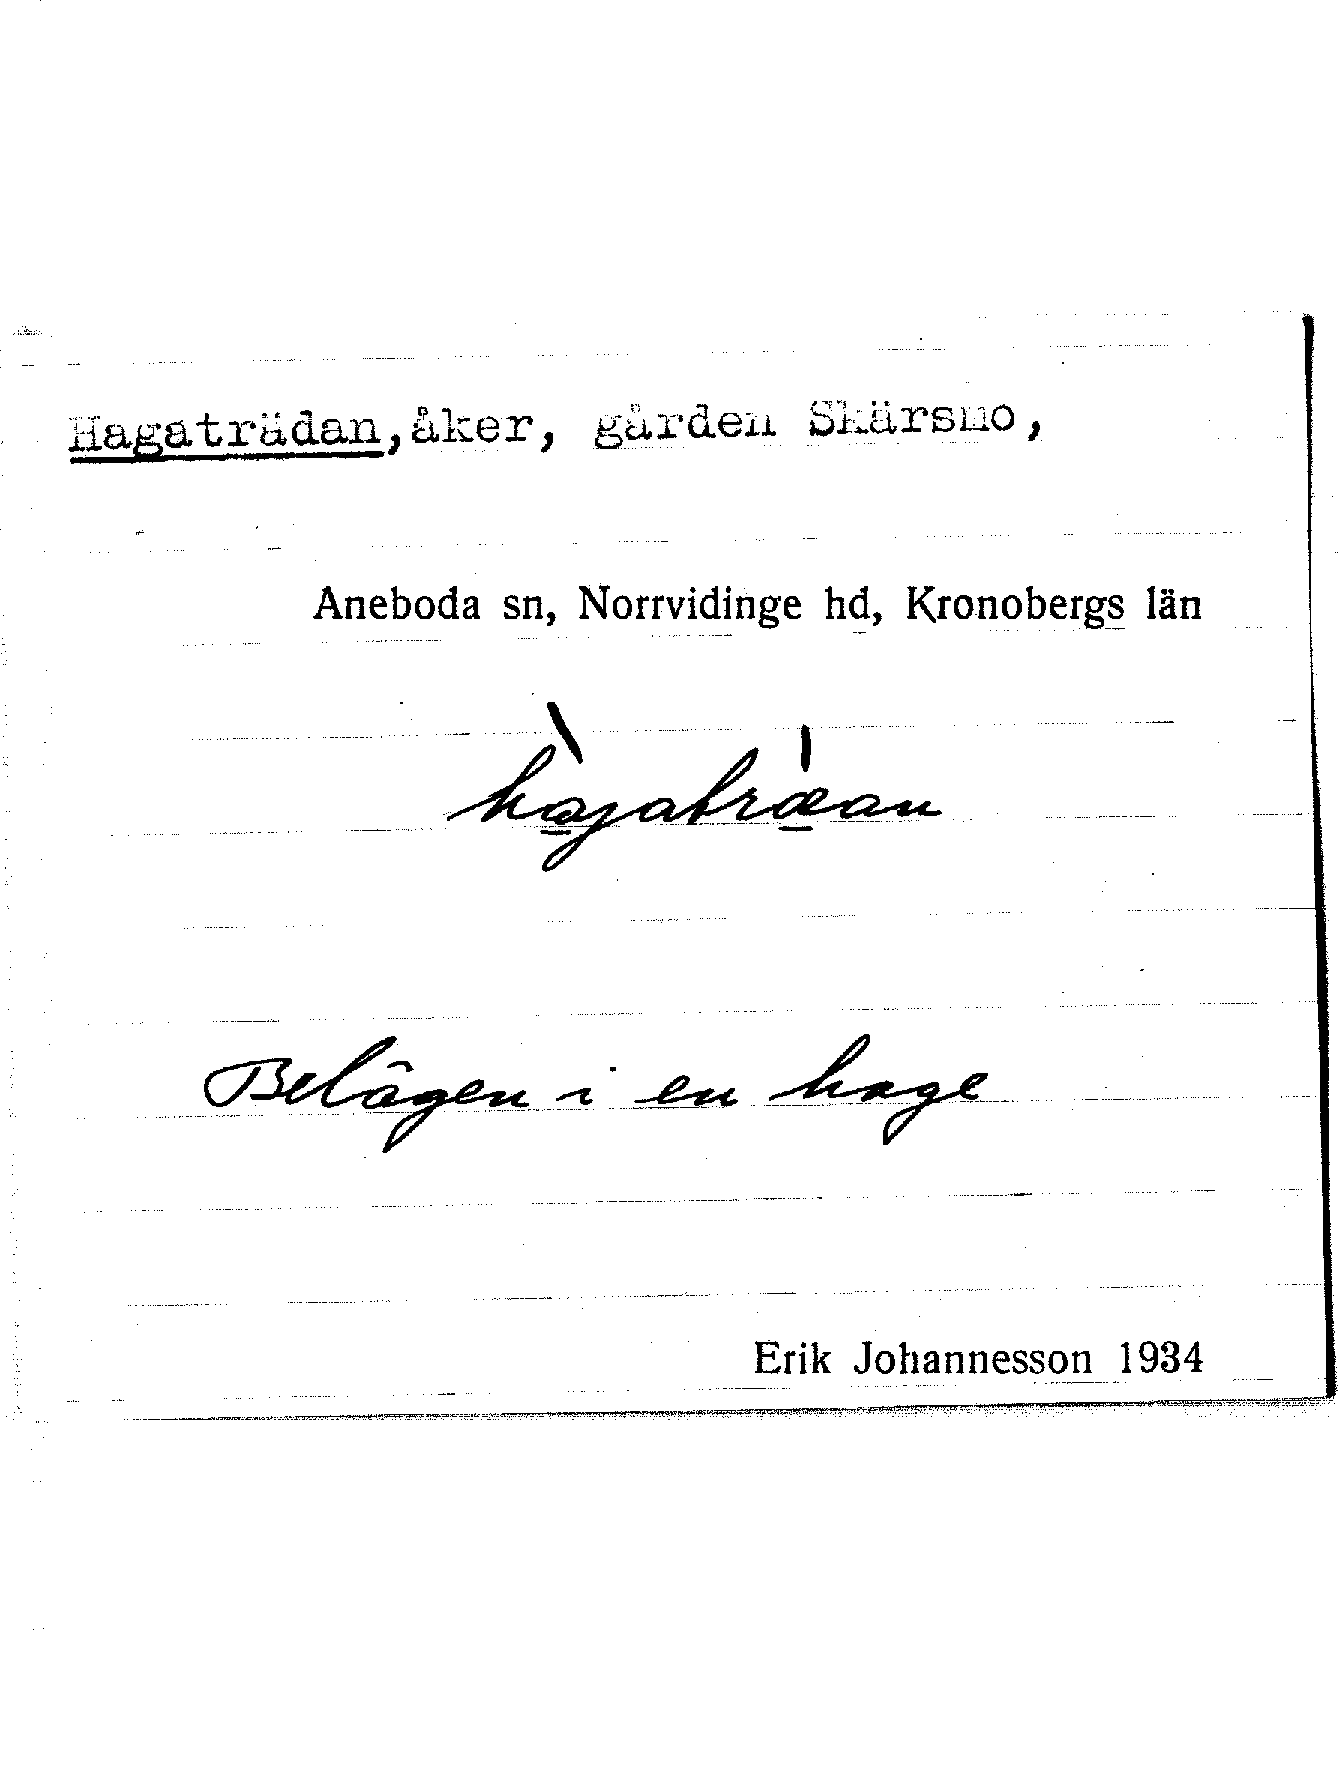 Hagaträdan, åker, gården Skärsmo,
Aneboda sn, Norrvidinge hd, Kronobergs län
Belägen i en hage
Erik Johannesson 1934